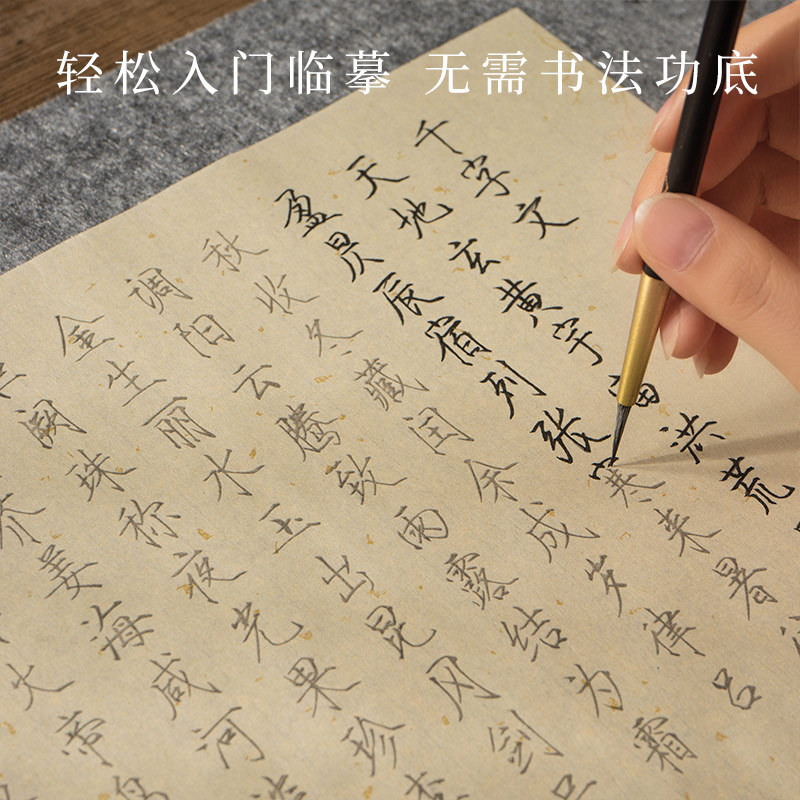 轻松入门临摹 无需书法功底
千字文
天地玄黄宇宙洪荒
盈昃辰宿列张寒来暑
秋收冬藏闰余成岁律吕
调阳云腾致雨露结为霜
金生丽水玉出昆冈剑
阙珠称夜光果珍李
芥姜海咸河
火帝